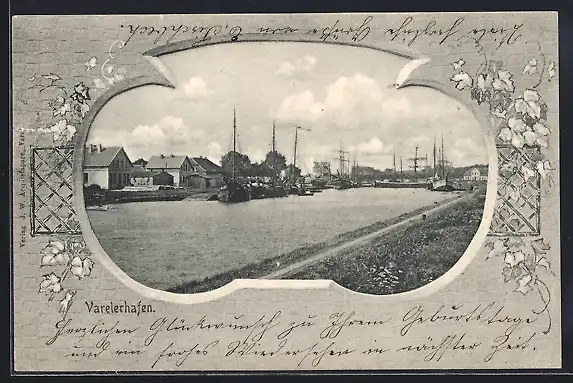 Viele herzliche Grüße von
Verlag J. W. Acquistapace, Varel
Varelerhafen.
Herzlichen Glückwunsch zu Ihrem Geburtstage
und ein frohes Wiedersehen in nächster Zeit.